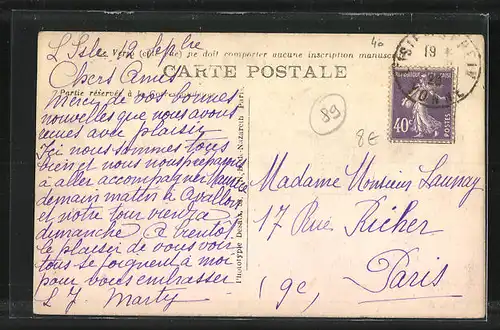 L'Isle 12 Septbre
Ce Verso (côté gauche) ne doit comporter aucune inscription manuscrite
CARTE POSTALE
Chers Amis
Partie réservée à la Correspondance
Merci de vos bonnes
nouvelles que nous avons
reçues avec plaisir
Ici nous sommes tous
bien et nous nous préparons
à aller accompagner Maurice
demain matin à Avallon
et notre tour viendra
dimanche. A bientôt
le plaisir de vous voir
tous se joignent à moi
pour vous embrasser
L J. Marty
Phototypie Desaix
Nazareth Paris
40
19
YONNE
40c
POSTES
89
8E
Madame Monsieur Launay
17 Rue Richer
Paris
(9e)